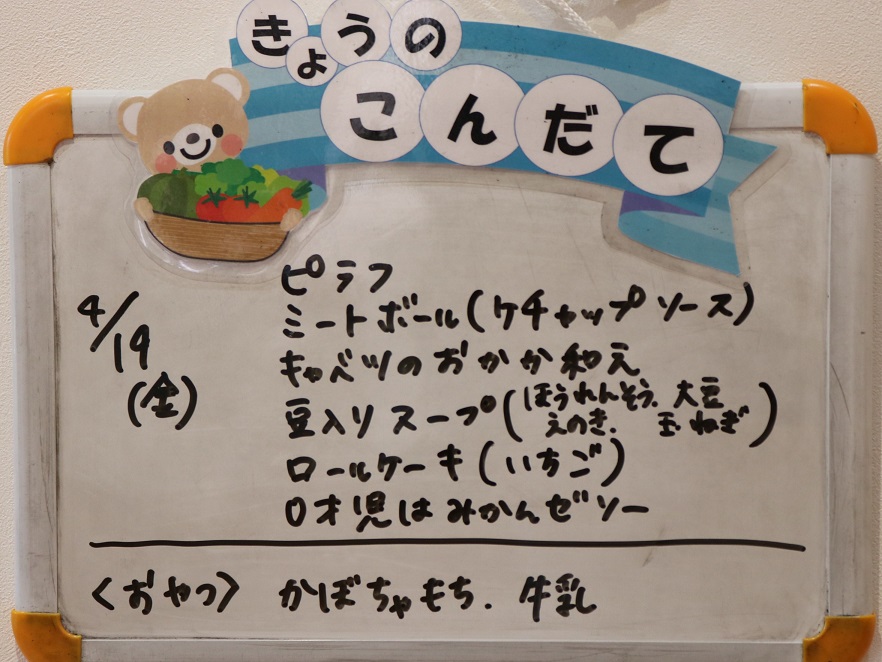 きょうの
こんだて
4/19
(金)
ピラフ
ミートボール(ケチャップソース)
キャベツのおかか和え
豆入りスープ(ほうれんそう.大豆
えのき. 玉ねぎ)
ロールケーキ(いちご)
0才児はみかんゼリー
〈おやつ〉 かぼちゃもち. 牛乳